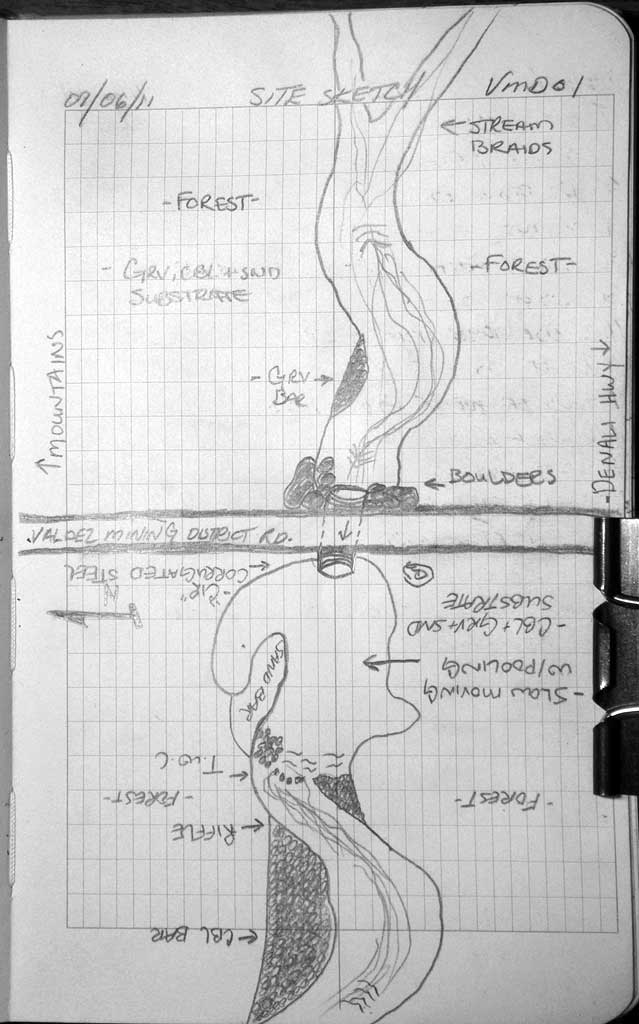 07/06/11
SITE SKETCH
VMD01
← STREAM
BRAIDS
-FOREST-
- GRV, CBL + SND
SUBSTRATE
-FOREST-
- GRV →
BAR
↑ MOUNTAINS
-DENALI HWY→
← BOULDERS
VALDEZ MINING DISTRICT RD.
CORRUGATED STEEL
N
- CBL + GRV + SND
SUBSTRATE
SAND BAR
- SLOW MOVING
W/POOLING
T.W.C
-FOREST-
-FOREST-
RIFFLE
CBL BAR